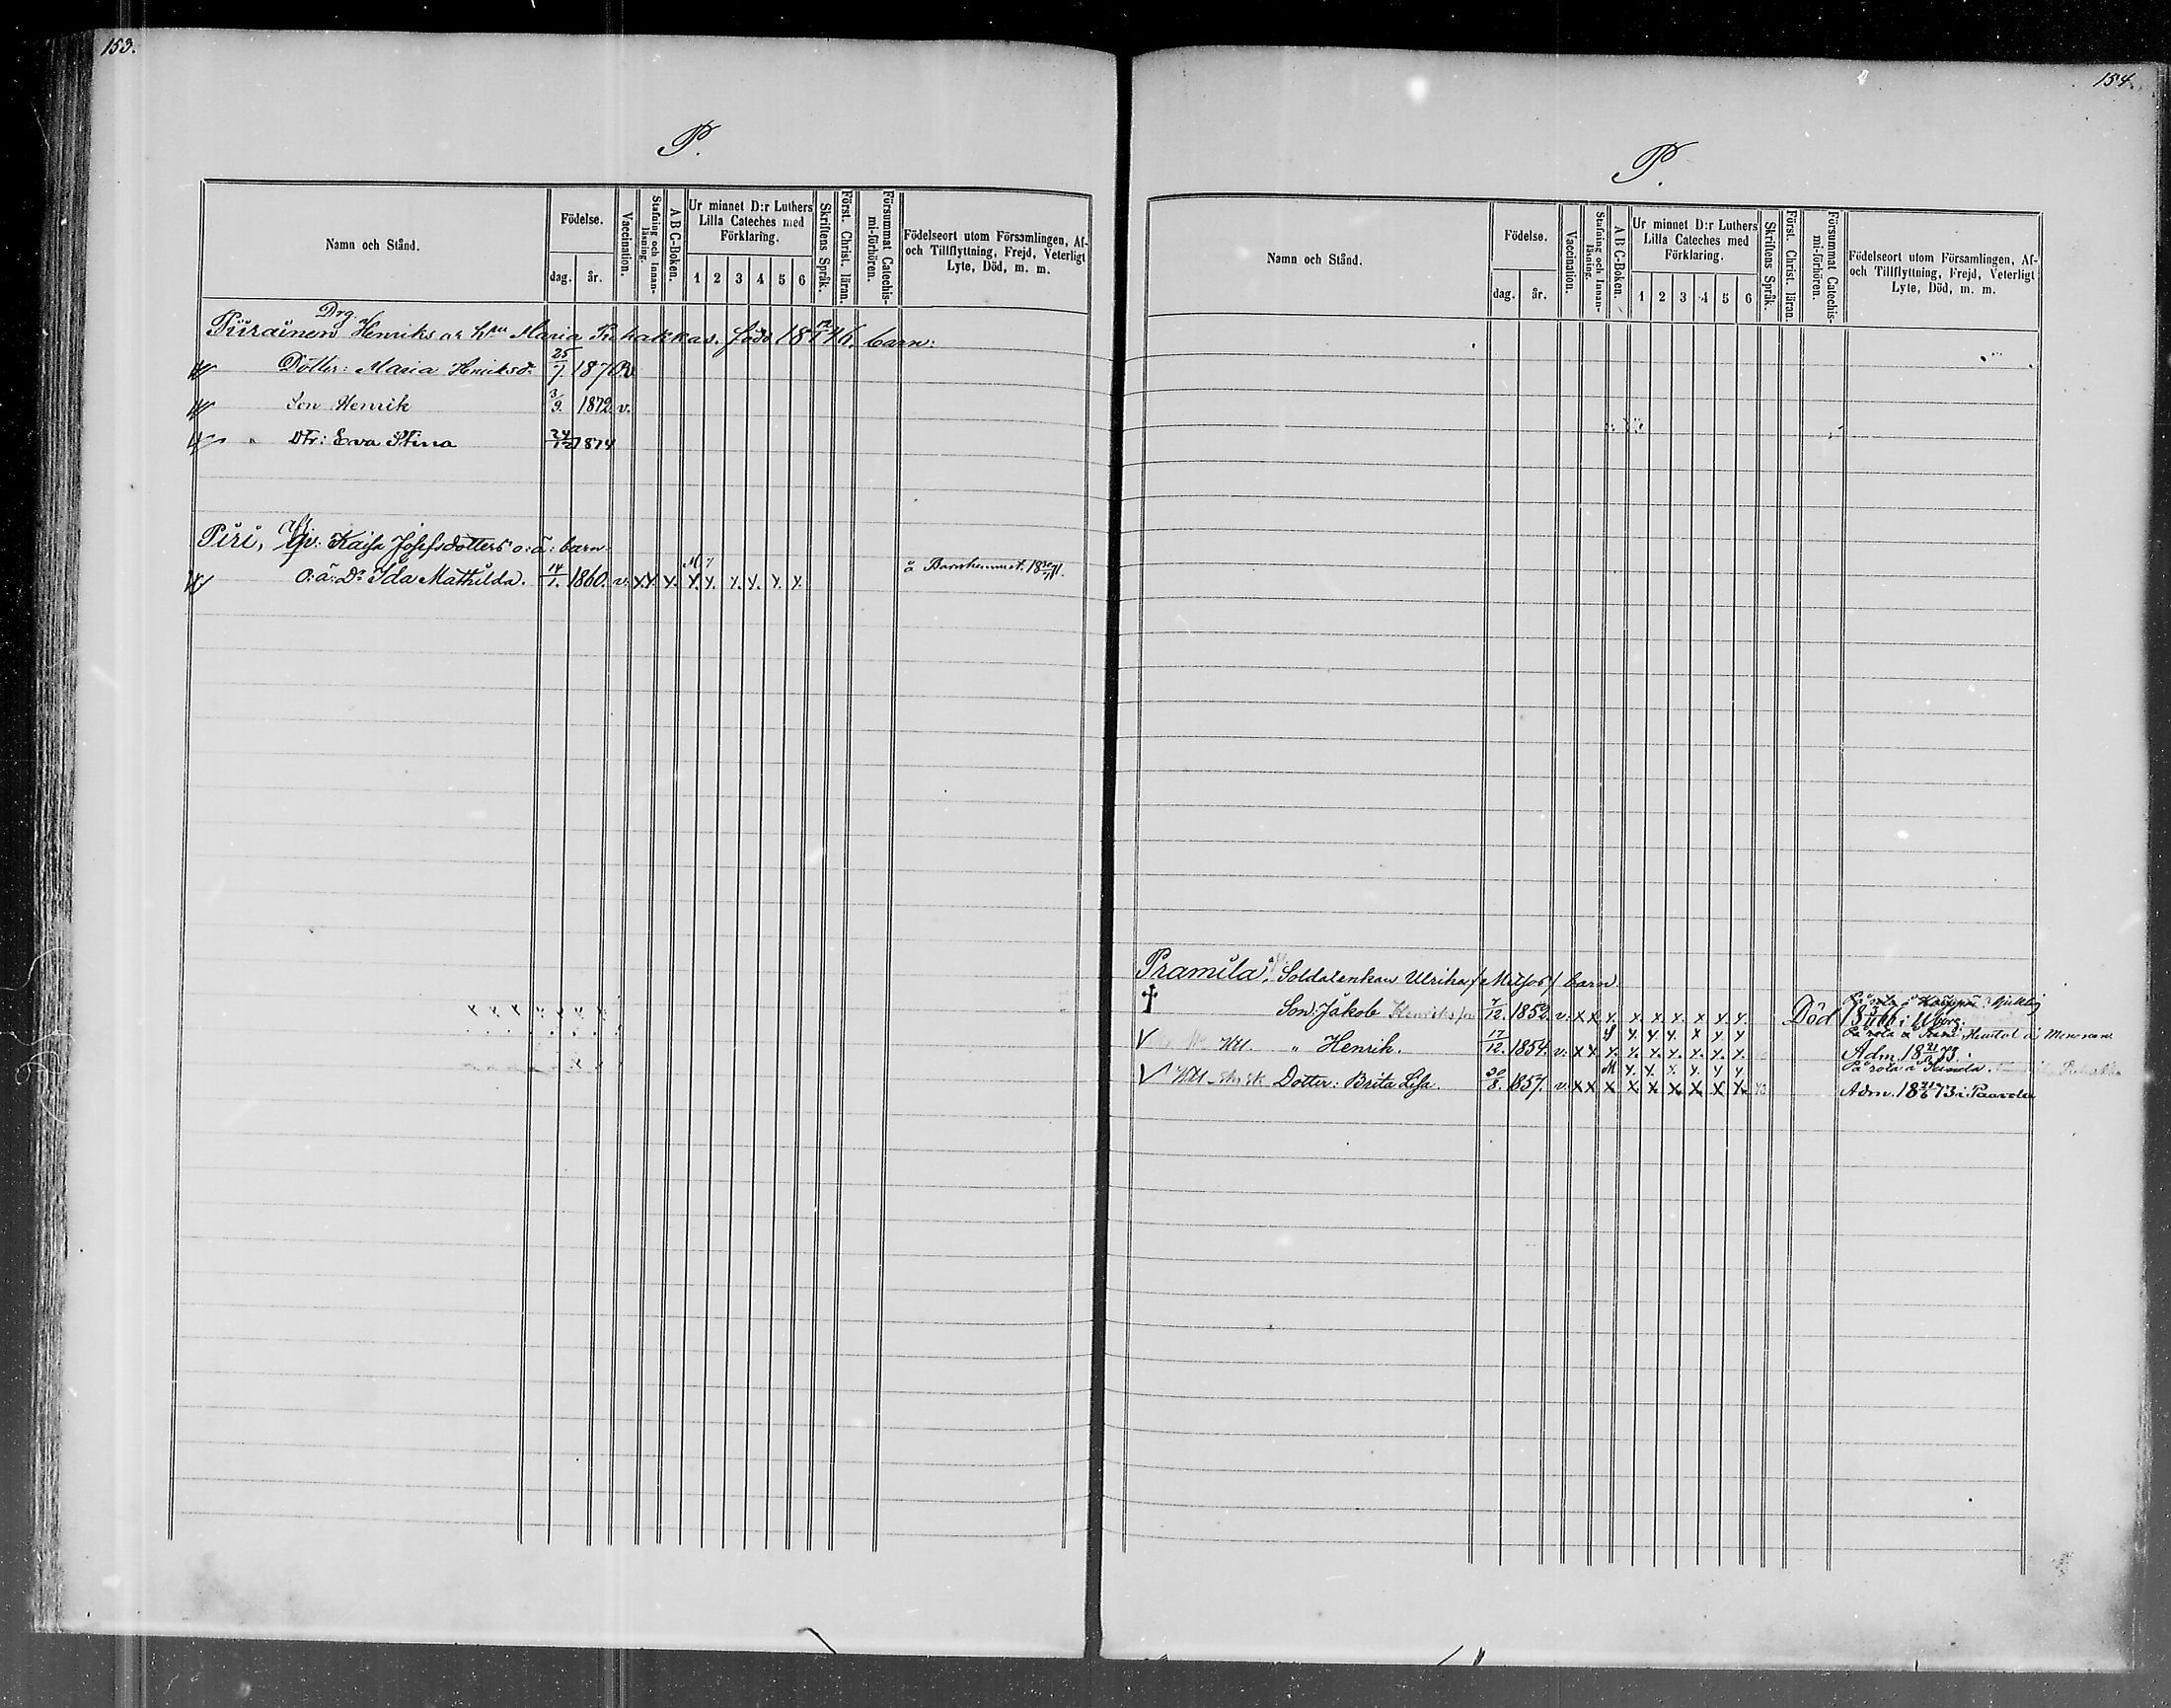 153.
P.
Namn och Stånd.
Födelse.
dag.
år.
Vaccination.
Stafning och Innan-
läsning.
A B C-Boken.
Ur minnet D:r Luthers
Lilla Cateches med
Förklaring.
1 2 3 4 5 6
Skriftens Språk.
Först. Christ. läran.
Försummat Catechis-
mi-förhören.
Födelseort utom Församlingen, Af-
och Tillflyttning, Frejd, Veterligt
Lyte, Död, m. m.
Drg.
Piirainen Henriks o. h. Maria född barn:
Dotter: Maria Henriksdr 25/7. 1870. v.
Son Henrik 3/9. 1872 v.
Dtr: Eva Stina 24/12 1874
Piri, Kaisa Josefsdotters o: ä: barn
o: ä: Dr Ida Mathilda. 14/1. 1860. v. x x x. x. x. x. x. x. x.
å Barnhemmet
154.
P.
Namn och Stånd.
Födelse.
dag.
år.
Vaccination.
Stafning och Innan-
läsning.
A B C-Boken.
Ur minnet D:r Luthers
Lilla Cateches med
Förklaring.
1 2 3 4 5 6
Skriftens Språk.
Först. Christ. läran.
Försummat Catechis-
mi-förhören.
Födelseort utom Församlingen, Af-
och Tillflyttning, Frejd, Veterligt
Lyte, Död, m. m.
Pramila, Soldatenkan Ulrika barn
Son: Jakob 7/12. 1852. v. x x x. x. x. x. x x. x. Död i Wborg.
" Henrik. 17/12. 1854. v. x x x. x. x. x. x. x. x. Adm. 18 21/6 73.
Dotter: Brita Lisa. 1857. v. x x x x x x x x x Adm. 18 21/6 73 i Paavola